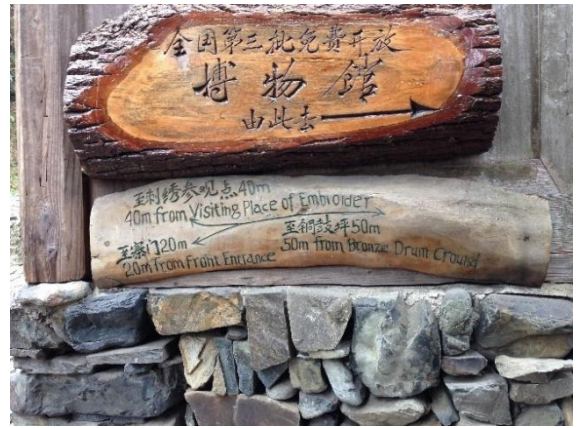 全国第三批免费开放
博物館
由此去
至刺绣参观点40m
40m from Visiting Place of Embroider
至銅鼓坪50m
50m from Bronze Drum Cround
至寨门20m
20m from Front Entrance